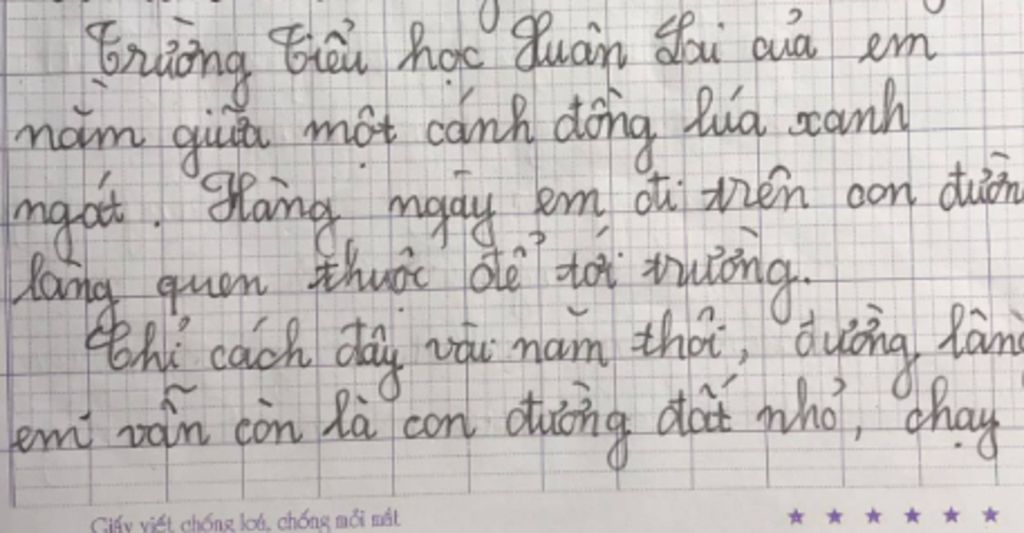 Trường Tiểu học Xuân Lai của em
nằm giữa một cánh đồng lúa xanh
ngát. Hàng ngày em đi trên con đườn
làng quen thuộc để tới trường.
Chỉ cách đây vài năm thôi, đường làng
em vẫn còn là con đường đất nhỏ, chạy
Giấy viết chống loá, chống mỏi mắt